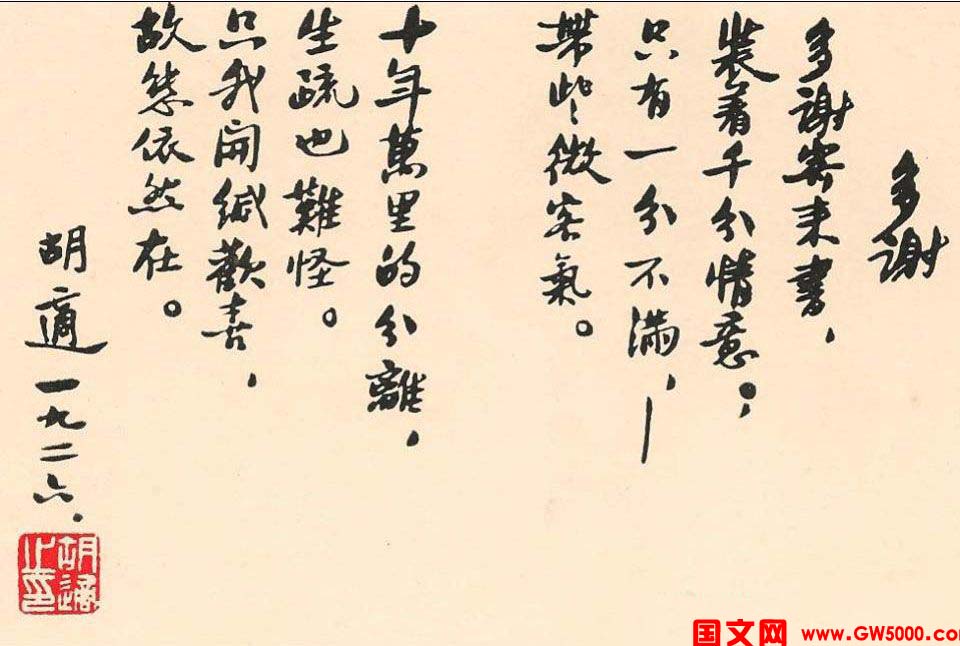 多謝
多謝寄来書，
裝着千分情意。，
只有一分不滿，—
帶些微客氣。
十年萬里的分離，
生疏也難怪。
只我開緘歡喜，
故態依然在。
胡適 一九二六．
胡適之印
国文网 www.GW5000.com